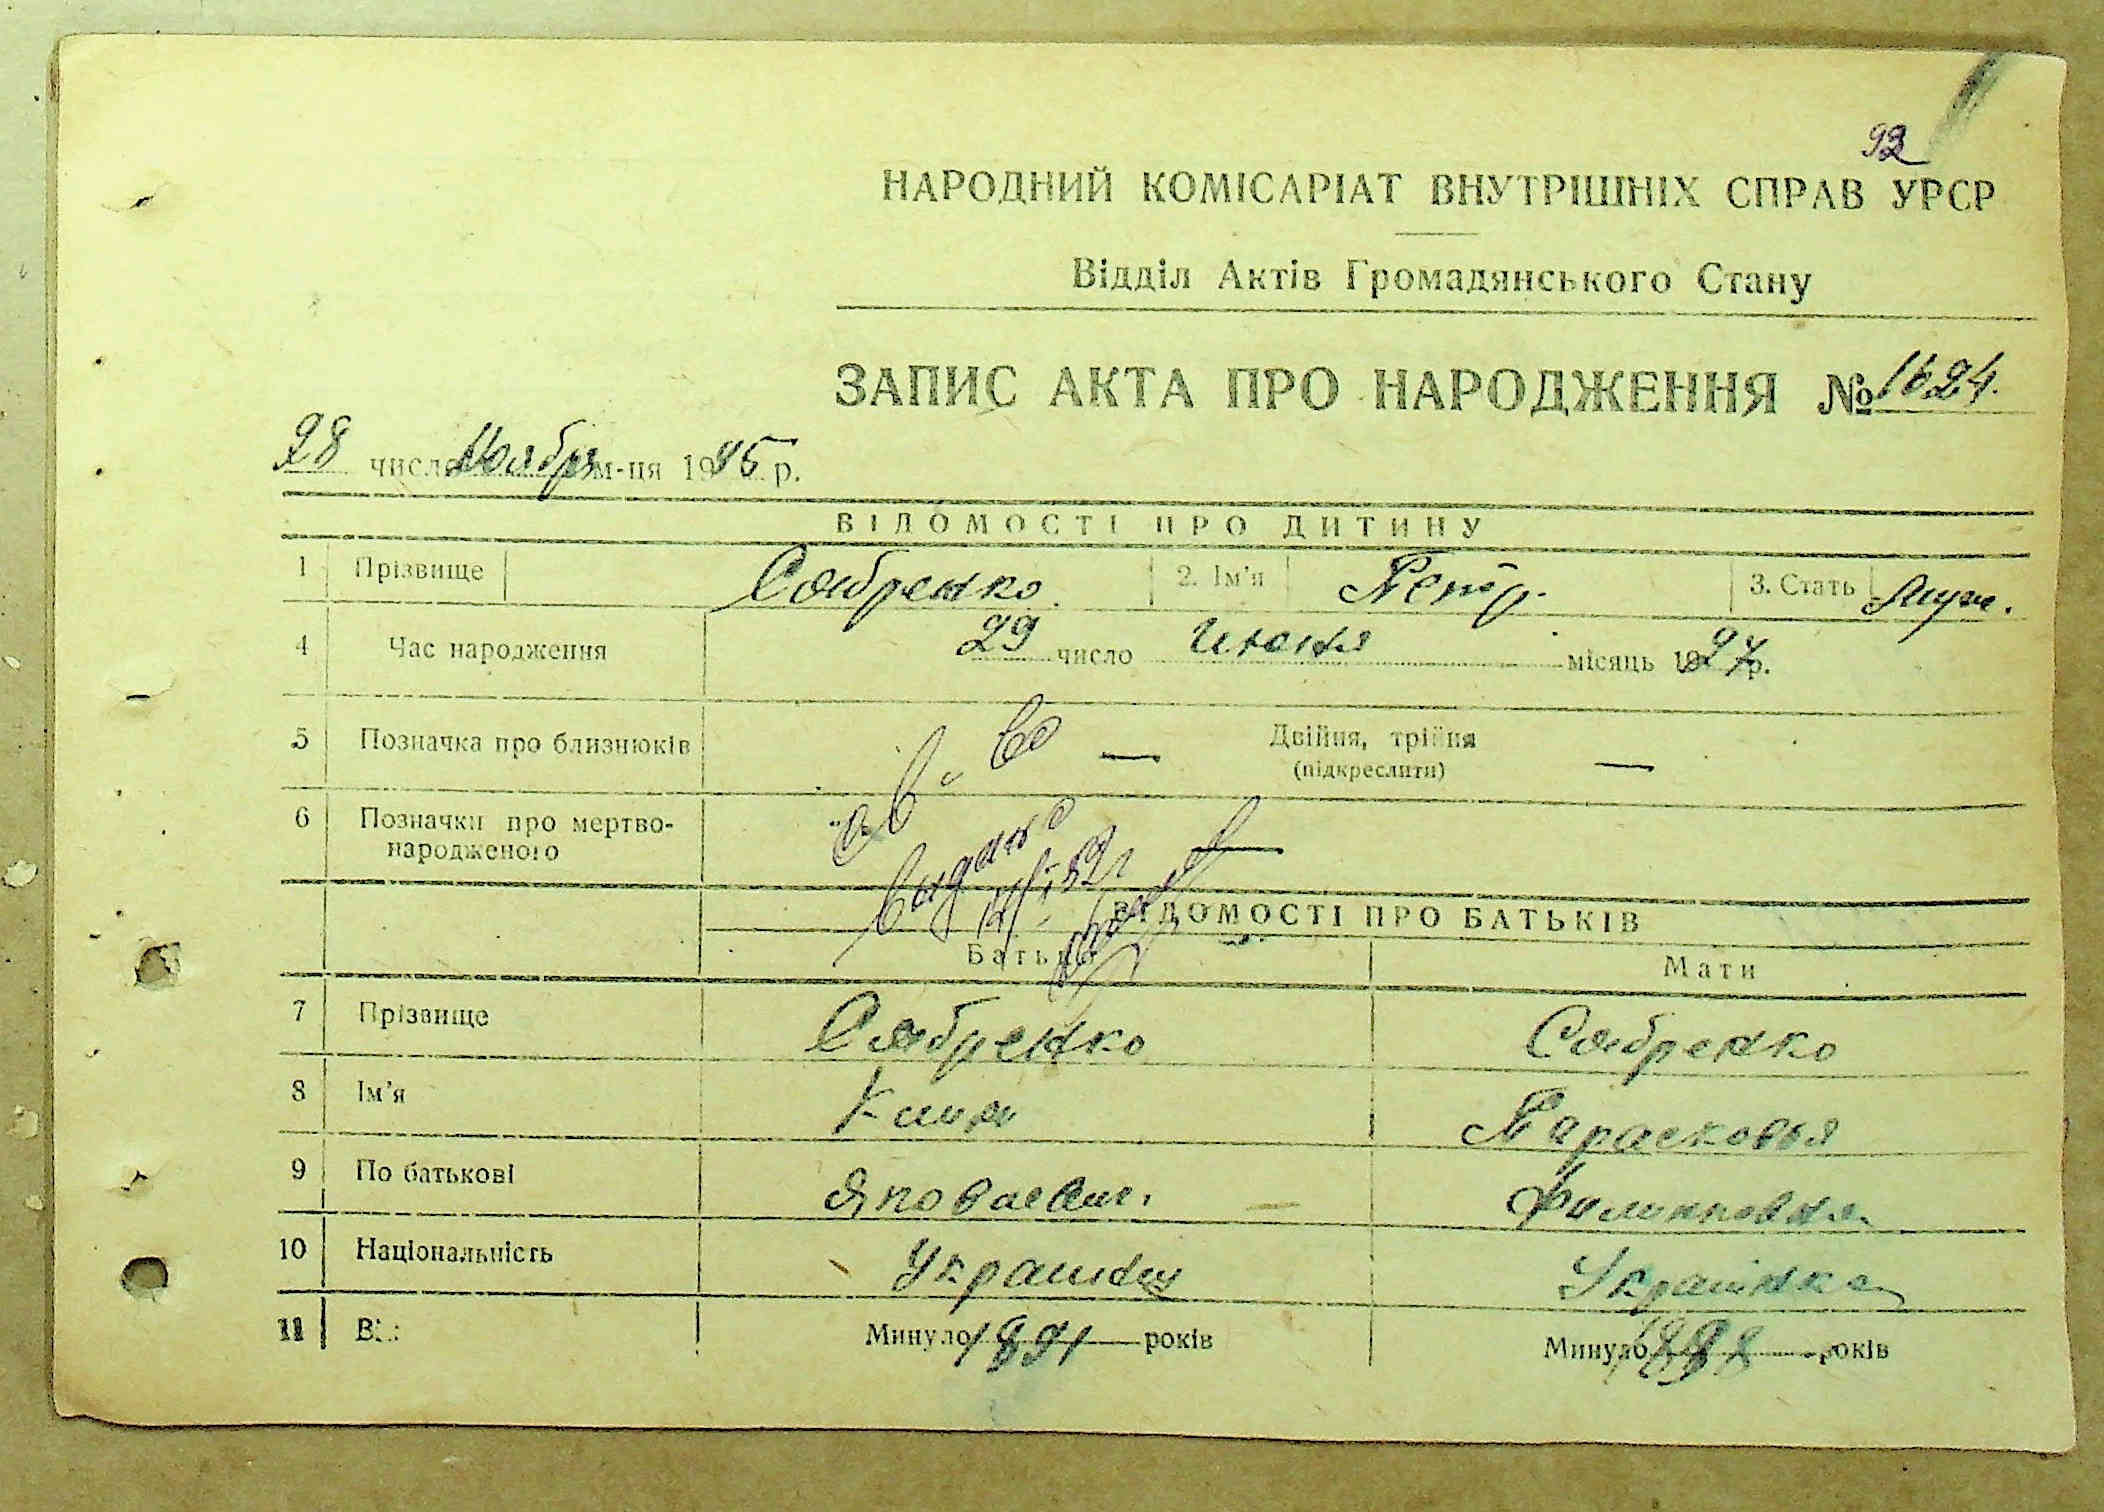 92
НАРОДНИЙ КОМІСАРІАТ ВНУТРІШНІХ СПРАВ УРСР
Відділ Актів Громадянського Стану
ЗАПИС АКТА ПРО НАРОДЖЕННЯ № 1624.
28 число Ноября м-ця 1945 р.
ВІДОМОСТІ ПРО ДИТИНУ
1 Прізвище Сябренко 2. Ім'я Петр. 3. Стать Муж.
4 Час народження 29 число Июня місяць 1927 р.
5 Позначка про близнюків — Двійня, трійня —
(підкреслити)
6 Позначки про мертво- —
народженого
Видано
ВІДОМОСТІ ПРО БАТЬКІВ
Батько Мати
7 Прізвище Сябренко Сябренко
8 Ім'я Клим Парасковья
9 По батькові Филипповна.
10 Національність Украинец Украінка
11 Минуло 1891 років Минуло років